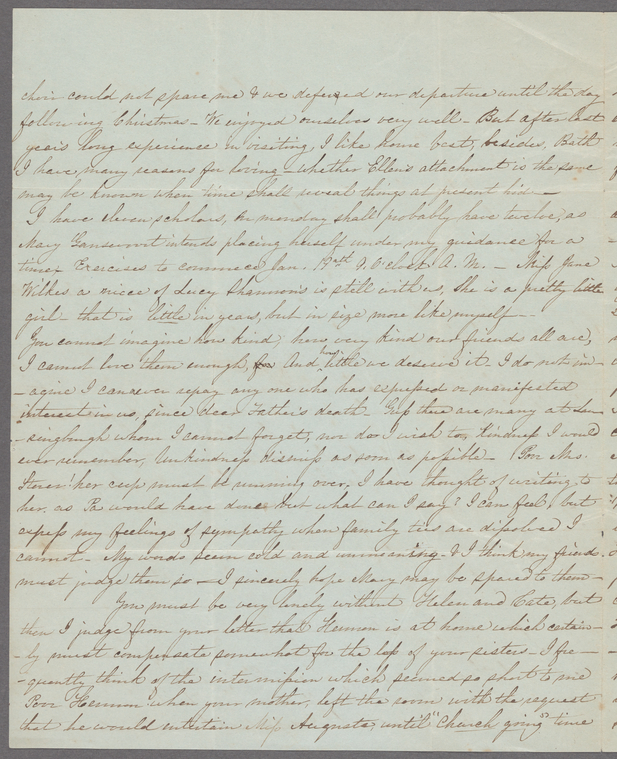 choir could not spare me & we defered our departure until the day
following Christmas - We enjoyed ourselves very well - But after last
years long experience in visiting, I like home best, besides, Bath
I have many reasons for loving - whether Ellen's attachment is the same
may be known when time shall reveal things at present hid -
I have eleven scholars, on monday shall probably have twelve, as
Mary Gansevoort intends placing herself under my guidance for a
time. Exercises to commence Jan. 9 O'clock A. M. - Miss Jane
Wilkes a niece of Lucy Shannon's is still with us, she is a pretty little
girl - that is little in years, but in size more like myself -
You cannot imagine how kind, how very kind our friends all are,
I cannot love them enough, And how little we deserve it - I do not im-
-agine I can ever repay any one who has expressed or manifested
interest in us, since dear Father's death - Yes there are many at Lan-
-singburgh whom I cannot forget, nor do I wish to, Kindness I would
ever remember, Unkindness dismiss as soon as possible - Poor Mrs.
her cup must be running over, I have thought of writing to
her, as Pa would have done, but what can I say? I can feel, but
express my feelings of sympathy when family ties are dissolved I
cannot - My words seem cold and unmeaning - & I think my friends
must judge them so - I sincerely hope Mary may be spared to them -
You must be very lonely without Helen and Cate, but
then I judge from your letter that Herman is at home which certain-
-ly must compensate somewhat for the loss of your sisters - I fre-
-quently think of the intermission which seemed so short to me
Poor Herman when your mother left the room with the request
that he would entertain Miss Augusta, until "Church going" time